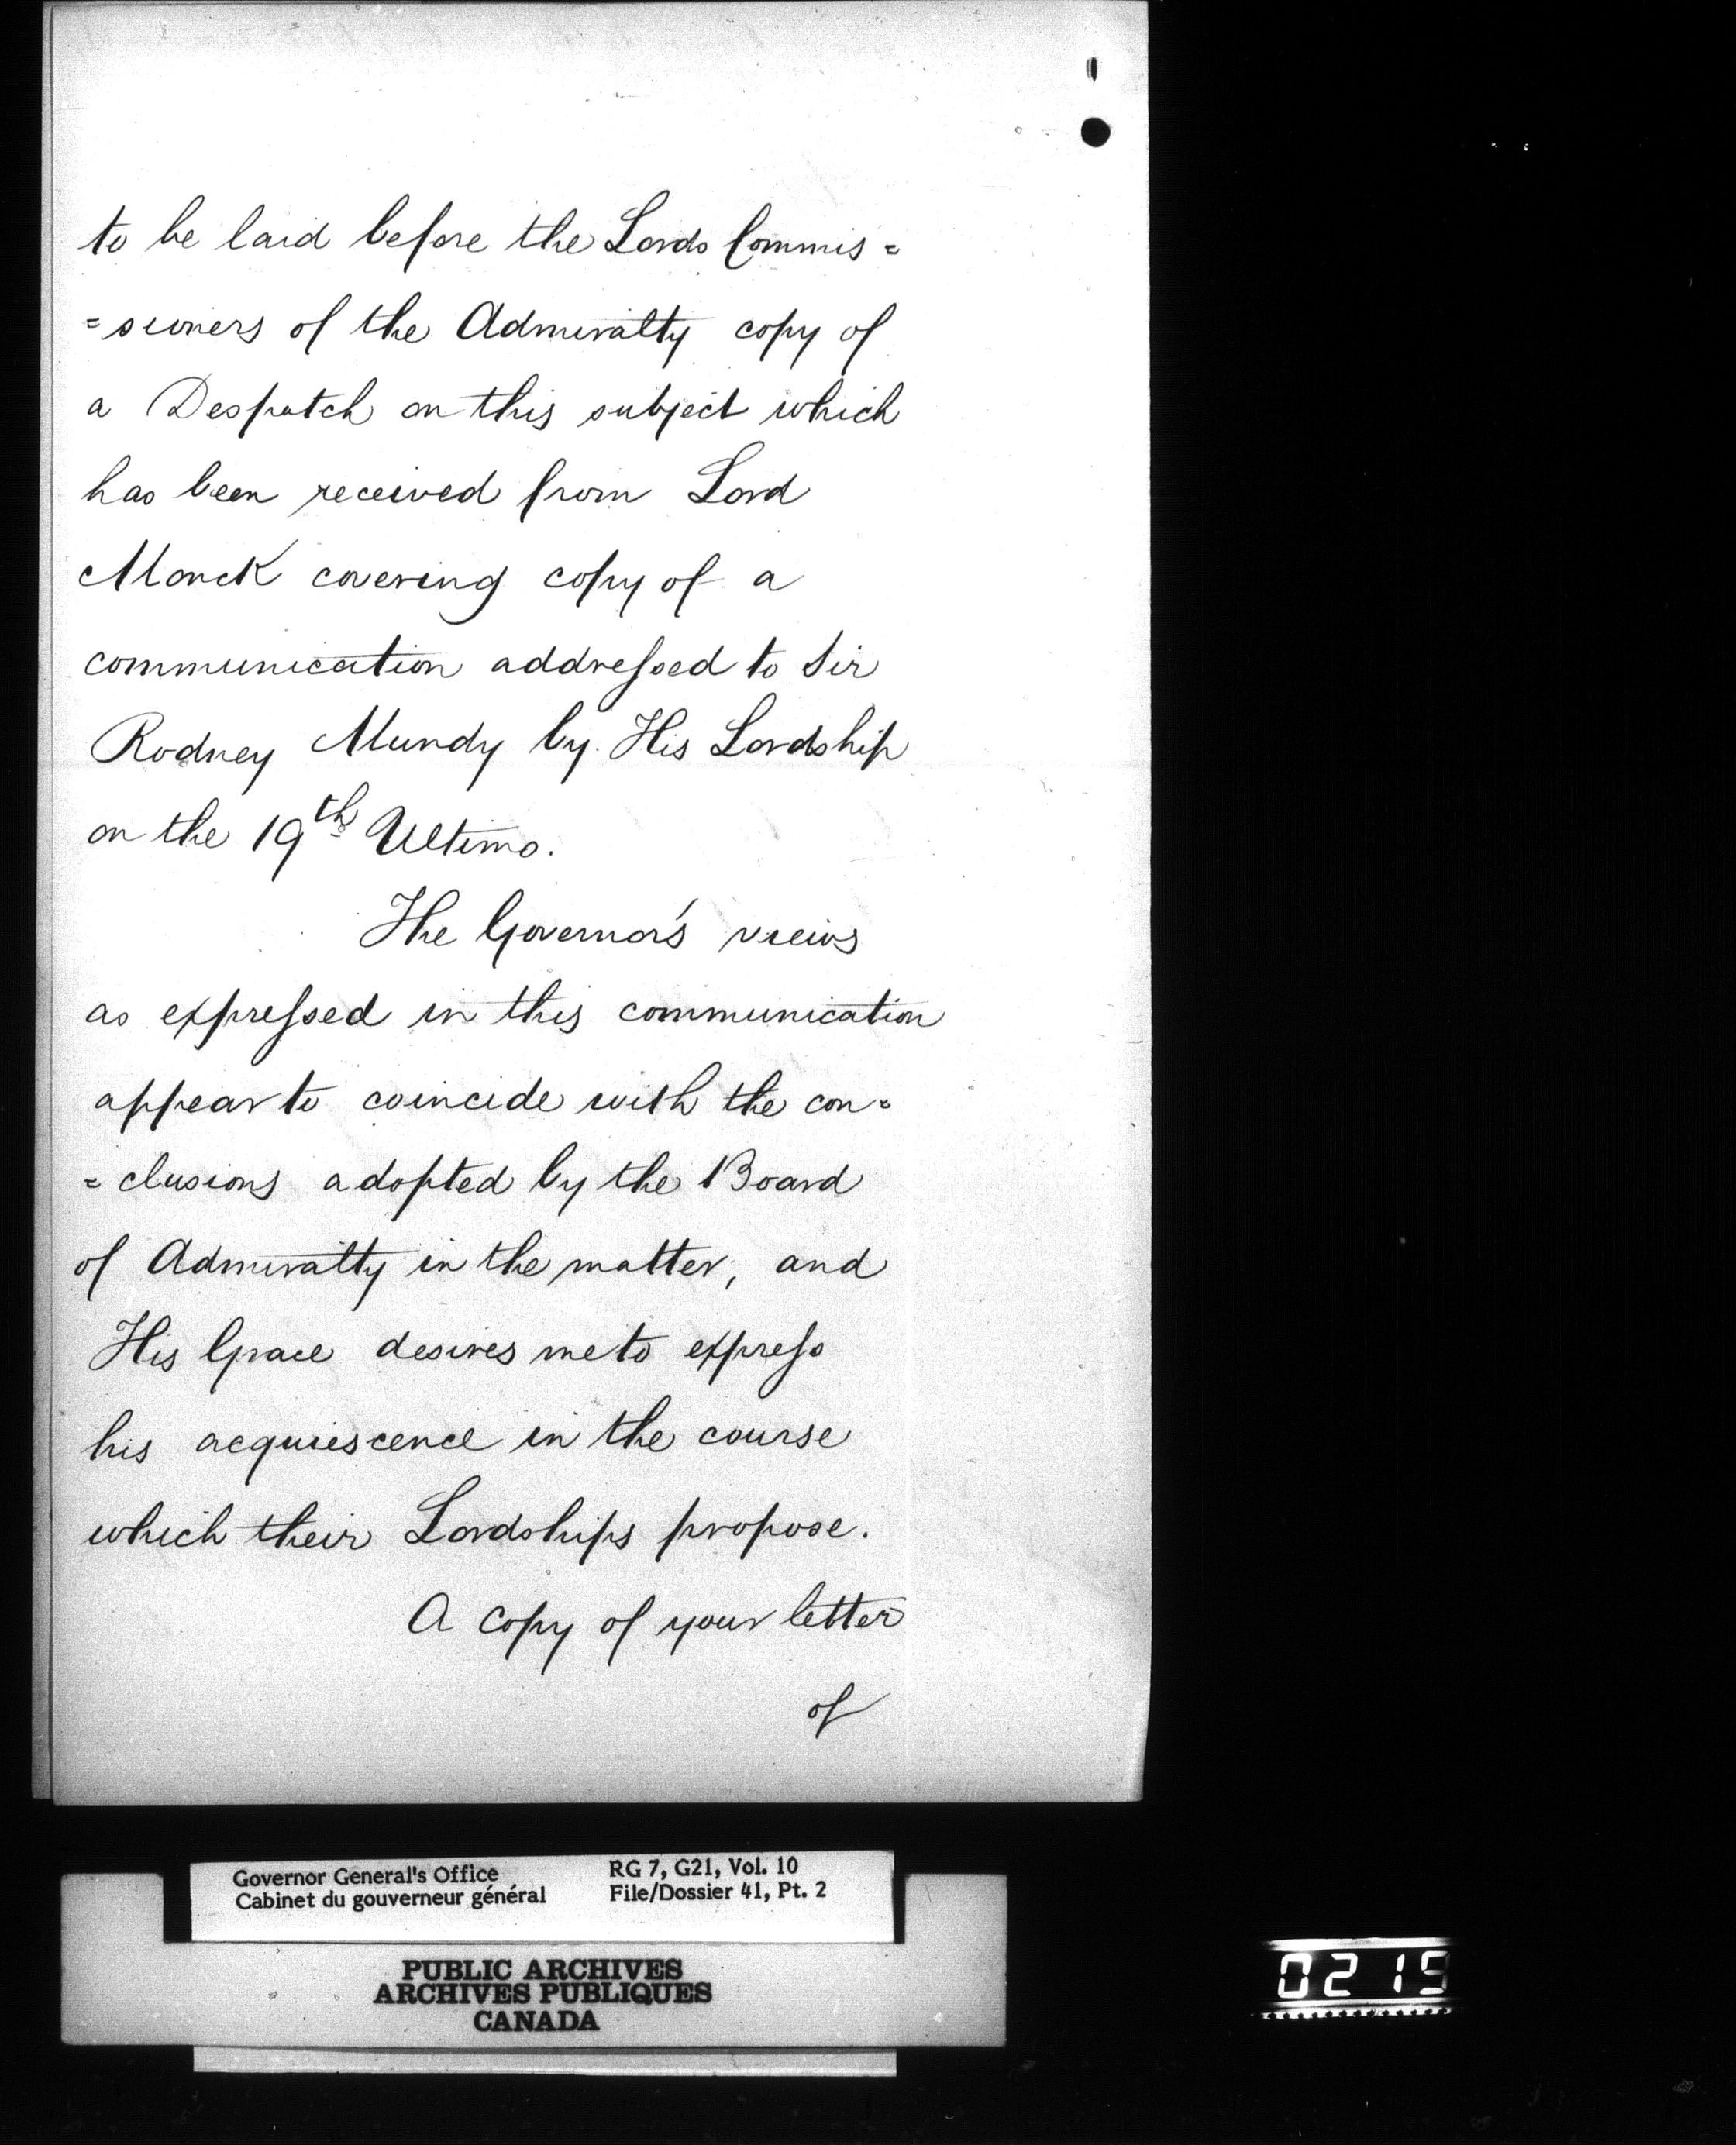 to be laid before the Lords Commis=
=sioners of the Admiralty copy of
a Despatch on this subject which
has been received from Lord
Monck covering copy of a
communication addressed to Sir
Rodney Mundy by His Lordship
on the 19th Ultimo.
The Governor's views
as expressed in this communication
appear to coincide with the con=
=clusions adopted by the Board
of Admiralty in the matter, and
His Grace desires me to express
his acquiescence in the course
which their Lordships propose.
A copy of your letter
of
Governor General's Office
Cabinet du gouverneur général
RG 7, G21, Vol. 10
File/Dossier 41, Pt. 2
PUBLIC ARCHIVES
ARCHIVES PUBLIQUES
CANADA
0215